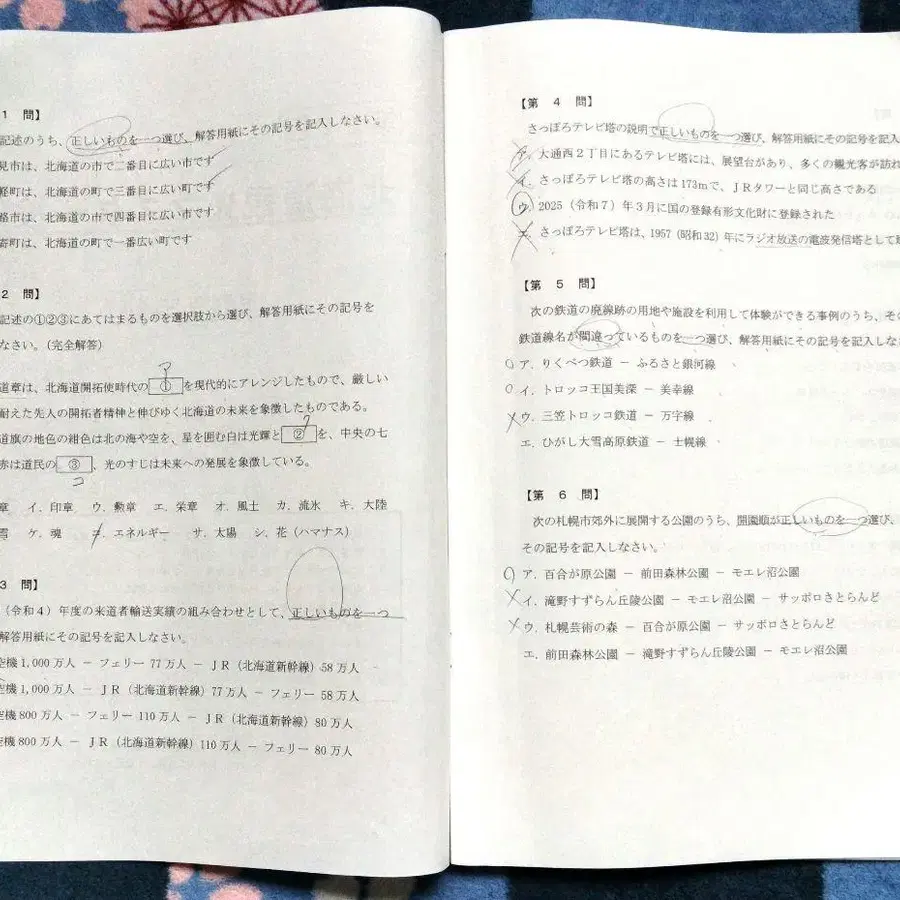 1 問】
記述のうち、正しいものを一つ選び、解答用紙にその記号を記入しなさい。
見市は、北海道の市で二番目に広い市です
軽町は、北海道の町で三番目に広い町です
路市は、北海道の市で四番目に広い市です
寄町は、北海道の町で一番広い町です
2 問】
記述の①②③にあてはまるものを選択肢から選び、解答用紙にその記号を
なさい。(完全解答)
道章は、北海道開拓使時代の ① を現代的にアレンジしたもので、厳しい
耐えた先人の開拓者精神と伸びゆく北海道の未来を象徴したものである。
道旗の地色の紺色は北の海や空を、星を囲む白は光輝と ② を、中央の七
赤は道民の ③ 、光のすじは未来への発展を象徴している。
コ
章 イ. 印章 ウ. 勲章 エ. 栄章 オ. 風土 カ. 流氷 キ. 大陸
雪 ケ. 魂 コ. エネルギー サ. 太陽 シ. 花(ハマナス)
3 問】
(令和4)年度の来道者輸送実績の組み合わせとして、正しいものを一つ
解答用紙にその記号を記入しなさい。
空機 1,000 万人 − フェリー 77 万人 − JR(北海道新幹線)58 万人
空機 1,000 万人 − JR(北海道新幹線)77 万人 − フェリー 58 万人
空機 800 万人 − フェリー 110 万人 − JR(北海道新幹線)80 万人
空機 800 万人 − JR(北海道新幹線)110 万人 − フェリー 80 万人
【第 4 問】
さっぽろテレビ塔の説明で正しいものを一つ選び、解答用紙にその記号を記入
ア. 大通西2丁目にあるテレビ塔には、展望台があり、多くの観光客が訪れ
イ. さっぽろテレビ塔の高さは173mで、JRタワーと同じ高さである
ウ. 2025(令和7)年3月に国の登録有形文化財に登録された
エ. さっぽろテレビ塔は、1957(昭和32)年にラジオ放送の電波発信塔として
【第 5 問】
次の鉄道の廃線跡の用地や施設を利用して体験ができる事例のうち、その
鉄道線名が間違っているものを一つ選び、解答用紙にその記号を記入しな
ア. りくべつ鉄道 − ふるさと銀河線
イ. トロッコ王国美深 − 美幸線
ウ. 三笠トロッコ鉄道 − 万字線
エ. ひがし大雪高原鉄道 − 士幌線
【第 6 問】
次の札幌市郊外に展開する公園のうち、開園順が正しいものを一つ選び、
その記号を記入しなさい。
ア. 百合が原公園 − 前田森林公園 − モエレ沼公園
イ. 滝野すずらん丘陵公園 − モエレ沼公園 − サッポロさとらんど
ウ. 札幌芸術の森 − 百合が原公園 − サッポロさとらんど
エ. 前田森林公園 − 滝野すずらん丘陵公園 − モエレ沼公園